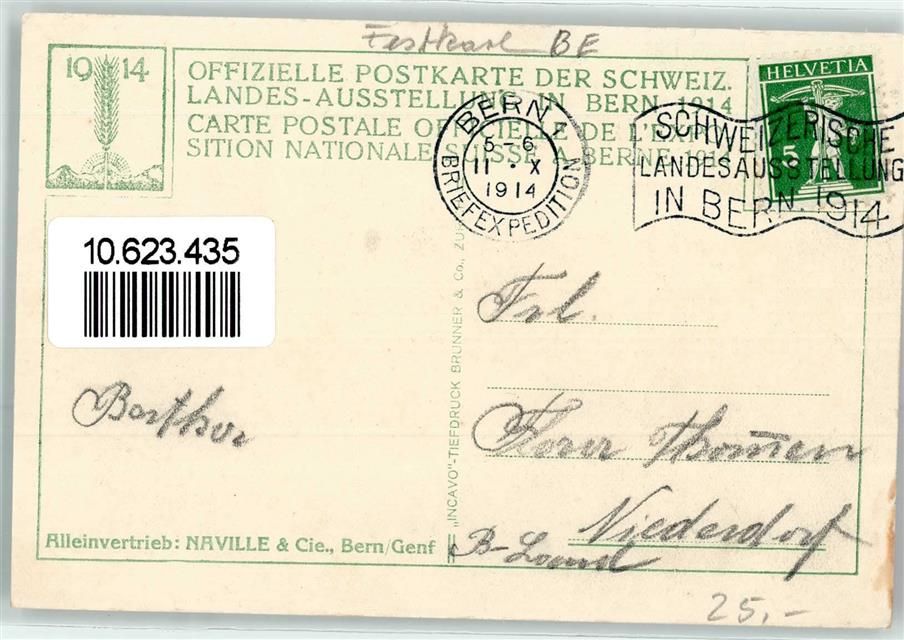 Festkarte BE
1914
OFFIZIELLE POSTKARTE DER SCHWEIZ.
LANDES-AUSSTELLUNG IN BERN 1914
CARTE POSTALE OFFICIELLE DE L'EXPO-
SITION NATIONALE SUISSE A BERNE 1914
HELVETIA
5
BERN 1
5-6
11 · X
1914
BRIEFEXPEDITION
SCHWEIZERISCHE
LANDESAUSSTELLUNG
IN BERN. 1914
10.623.435
Frl.
Thommen
Niederdorf
B-Land
"INCAVO"-TIEFDRUCK BRUNNER & Co.,
Alleinvertrieb: NAVILLE & Cie., Bern/Genf
25,-